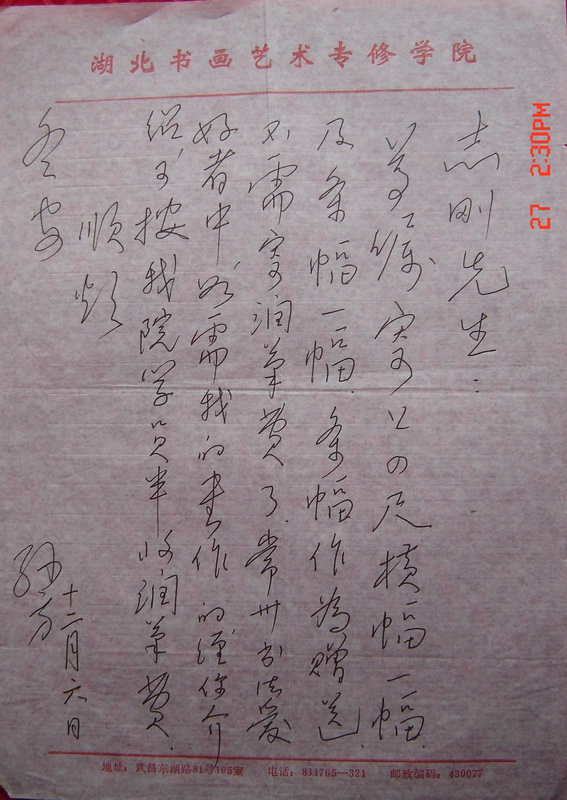 湖北书画艺术专修学院
志刚先生：
尊嘱寄上四尺横幅一幅.
及条幅一幅.条幅作为赠送,
不需寄润笔费了.常州书法爱
好者中,如需我的书作,的经你介
绍可按我院学员半收润笔费.
顺颂
冬安
孙方
十二月六日
地址：武昌东湖路81号105室 电话：811765—321 邮政编码：430077
27 2:30PM